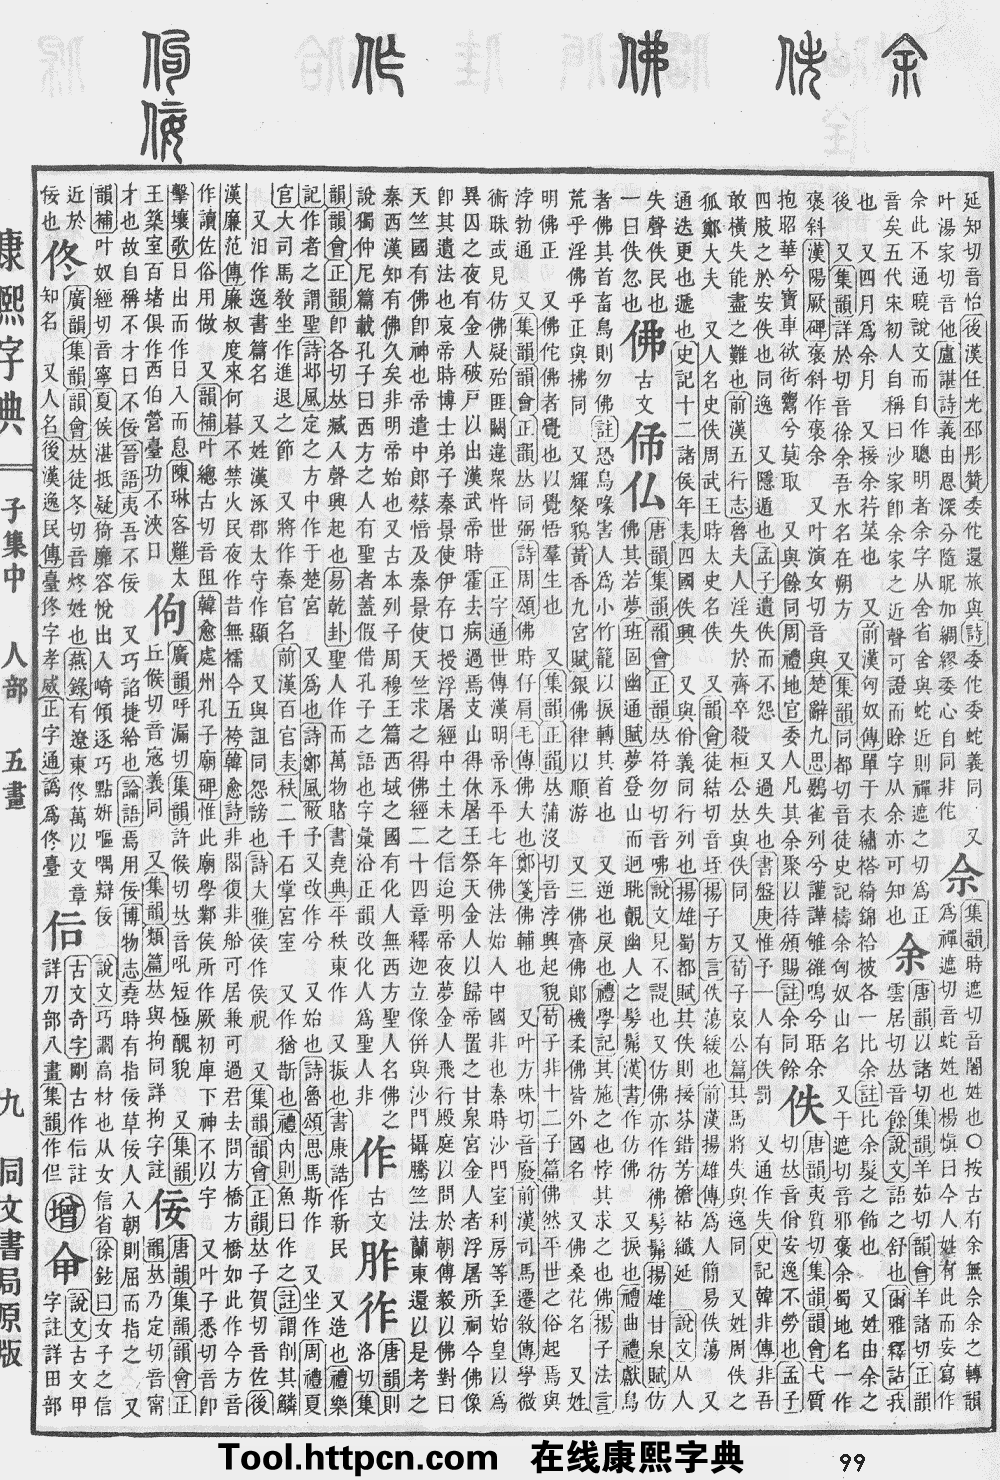 余 佚 佛 作 佝 佞
延知切音怡後漢任光邳彤贊委佗還旅與詩委佗委蛇義同 又
叶湯家切音他盧諶詩義由恩深分隨昵加綢繆委心自同非佗
佘
集韻時遮切音闍姓也○按古有余無佘余之轉韻
爲禪遮切音蛇姓也楊愼曰今人姓有此而妄寫作
佘此不通曉說文而自作聰明者余字从舍省舍與蛇近則禪遮之切爲正
音矣五代宋初人自稱曰沙家卽余家之近聲可證而賖字从余亦可知也
余
唐韻以諸切集韻羊茹切韻會羊諸切正韻
雲居切𠀤音餘說文語之舒也爾雅釋詁我
也 又四月爲余月 又接余荇菜也 又前漢匈奴傳單于衣繡袷綺錦袷被各一比余註比余髮之飾也 又姓由余之
後 又集韻詳於切音徐余吾水名在朔方 又集韻同都切音徒史記檮余匈奴山名 又于遮切音邪褒余蜀地名一作
褒斜漢陽厥碑褒斜作褒余 又叶演女切音與楚辭九思鵾雀列兮讙譁雊雒鳴兮聒余
抱昭華兮寶車欲衒鬻兮莫取 又與餘同周禮地官委人凡其余聚以待頒賜註余同餘
佚
唐韻夷質切集韻韻會弋質
切𠀤音佾安逸不勞也孟子
四肢之於安佚也同逸 又隱遁也孟子遺佚而不怨 又過失也書盤庚惟予一人有佚罰 又通作失史記韓非傳非吾
敢橫失能盡之難也前漢五行志魯夫人淫失於齊卒殺桓公𠀤與佚同 又荀子哀公篇其馬將失與逸同 又姓周佚之
狐鄭大夫 又人名史佚周武王時太史名佚 又韻會徒結切音垤揚子方言佚蕩緩也前漢揚雄傳爲人簡易佚蕩 又
通迭更也遞也史記十二諸侯年表四國佚興 又與佾義同行列也揚雄蜀都賦其佚則接芬錯芳襜袩纖延 說文从人
失聲佚民也
一曰佚忽也
佛
古文
仏
唐韻集韻韻會正韻𠀤符勿切音咈說文見不諟也 又仿佛亦作彷彿髣髴揚雄甘泉賦仿
佛其若夢班固幽通賦夢登山而迥眺覿幽人之髣髴漢書作仿佛 又捩也禮曲禮獻鳥
者佛其首畜鳥則勿佛註恐鳥喙害人爲小竹籠以捩轉其首也 又逆也戾也禮學記其施之也悖其求之也佛揚子法言
荒乎淫佛乎正與拂同 又輝祭貌黃香九宮賦銀佛律以順游 又三佛齊佛郎機柔佛皆外國名 又佛桑花名 又姓
明佛正 又佛佗佛者覺也以覺悟羣生也 又集韻正韻𠀤蒲沒切音浡興起貌荀子非十二子篇佛然平世之俗起焉與
浡勃通 又集韻韻會正韻𠀤同弼詩周頌佛時仔肩毛傳佛大也鄭箋佛輔也 又叶方味切音廢前漢司馬遷敘傳學微
術昧或見仿佛疑殆匪闕違衆忤世 正字通世傳漢明帝永平七年佛法始入中國非也秦時沙門室利房等至始皇以爲
異囚之夜有金人破戸以出漢武帝時霍去病過焉支山得休屠王祭天金人以歸帝置之甘泉宮金人者浮屠所祠今佛像
卽其遺法也哀帝時博士弟子秦景使伊存口授浮屠經中土未之信迨明帝夜夢金人飛行殿庭以問於朝傅毅以佛對曰
天竺國有佛卽神也帝遣中郎蔡愔及秦景使天竺求之得佛經二十四章釋迦立像倂與沙門攝騰竺法蘭東還以是考之
秦西漢知有佛久矣非明帝始也又古本列子周穆王篇西域之國有化人無西方聖人名佛之
說獨仲尼篇載孔子曰西方之人有聖者蓋假借孔子之語也字彙沿正韻改化人爲聖人非
作
古文
唐韻則
洛切集
韻韻會正韻卽各切𠀤臧入聲興起也易乾卦聖人作而萬物睹書堯典平秩東作 又振也書康誥作新民 又造也禮樂
記作者之謂聖詩鄘風定之方中作于楚宮 又爲也詩鄭風敝予又改作兮 又始也詩魯頌思馬斯作 又坐作周禮夏
官大司馬敎坐作進退之節 又將作秦官名前漢百官表秩二千石掌宮室 又作猶斮也禮內則魚曰作之註謂削其鱗
又汨作逸書篇名 又姓漢涿郡太守作顯 又與詛同怨謗也詩大雅侯作侯祝 又集韻韻會正韻𠀤子賀切音佐後
漢廉范傳廉叔度來何暮不禁火民夜作昔無襦今五袴韓愈詩非閣復非船可居兼可過君去問方橋方橋如此作今方音
作讀佐俗用做 又韻補叶總古切音阻韓愈處州孔子廟碑惟此廟學鄴侯所作厥初庫下神不以宇 又叶子悉切音卽
擊壤歌日出而作日入而息陳琳客難太
王築室百堵俱作西伯營臺功不浹日
佝
廣韻呼漏切集韻許候切𠀤音吼短極醜貌 又集韻
丘候切音寇義同 又集韻類篇𠀤與拘同詳拘字註
佞
唐韻集韻韻會正
韻𠀤乃定切音甯
才也故自稱不才曰不佞晉語夷吾不佞 又巧諂捷給也論語焉用佞博物志堯時有指佞草佞人入朝則屈而指之 又
韻補叶奴經切音寧夏侯湛抵疑猗靡容悅出入崎傾逐巧點姸嘔喁辯佞 說文巧讇高材也从女信省徐鉉曰女子之信
近於
佞也
佟
廣韻集韻韻會𠀤徒冬切音炵姓也燕錄有遼東佟萬以文章
知名 又人名後漢逸民傳臺佟字孝威正字通譌爲佟臺
古文奇字剛古作註
詳刀部八畫集韻作
增
說文古文甲
字註詳田部
康熙字典
子集中 人部 五畫
九
同文書局原版
Tool.httpcn.com 在线康熙字典
99